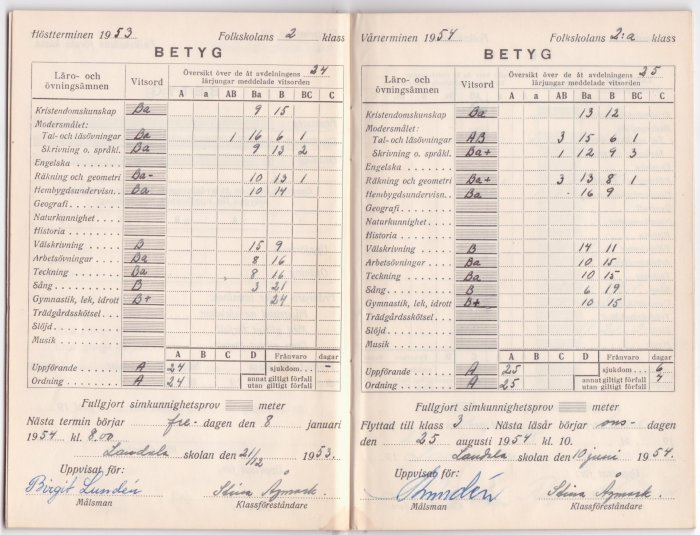 Höstterminen 1953. Folkskolans 2 klass
BETYG
Läro- och övningsämnen Vitsord Översikt över de åt avdelningens 24 lärjungar meddelade vitsorden
A a AB Ba B BC C
Kristendomskunskap Ba 9 15
Modersmålet:
Tal- och läsövningar Ba 1 16 6 1
Skrivning o. språkl. Ba 9 13 2
Engelska
Räkning och geometri Ba- 10 13 1
Hembygdsundervisn. Ba 10 14
Geografi
Naturkunnighet
Historia
Välskrivning B 15 9
Arbetsövningar Ba 8 16
Teckning Ba 8 16
Sång B 3 21
Gymnastik, lek, idrott B+ 24
Trädgårdsskötsel
Slöjd
Musik
A B C D Frånvaro dagar
Uppförande A 24 sjukdom -
Ordning A 24 annat giltigt förfall
utan giltigt förfall
Fullgjort simkunnighetsprov meter
Nästa termin börjar fre- dagen den 8 januari
1954 kl. 8.00
Landala skolan den 21/12 1953.
Uppvisat för:
Birgit Lundén Stina Åzmark
Målsman Klassföreståndare
Vårterminen 1954 Folkskolans 2:a klass
BETYG
Läro- och övningsämnen Vitsord Översikt över de åt avdelningens 25 lärjungar meddelade vitsorden
A a AB Ba B BC C
Kristendomskunskap Ba 13 12
Modersmålet:
Tal- och läsövningar AB 3 15 6 1
Skrivning o. språkl. Ba+ 1 12 9 3
Engelska
Räkning och geometri Ba+ 3 13 8 1
Hembygdsundervisn. Ba 16 9
Geografi
Naturkunnighet
Historia
Välskrivning B 14 11
Arbetsövningar Ba 10 15
Teckning Ba 10 15
Sång B 6 19
Gymnastik, lek, idrott B+ 10 15
Trädgårdsskötsel
Slöjd
Musik
A B C D Frånvaro dagar
Uppförande A 25 sjukdom 6
Ordning A 25 annat giltigt förfall 7
utan giltigt förfall
Fullgjort simkunnighetsprov meter
Flyttad till klass 3 Nästa läsår börjar ons- dagen
den 25 augusti 1954 kl. 10.
Landala skolan den 10 juni 1954.
Uppvisat för:
Lundén Stina Åzmark
Målsman Klassföreståndare